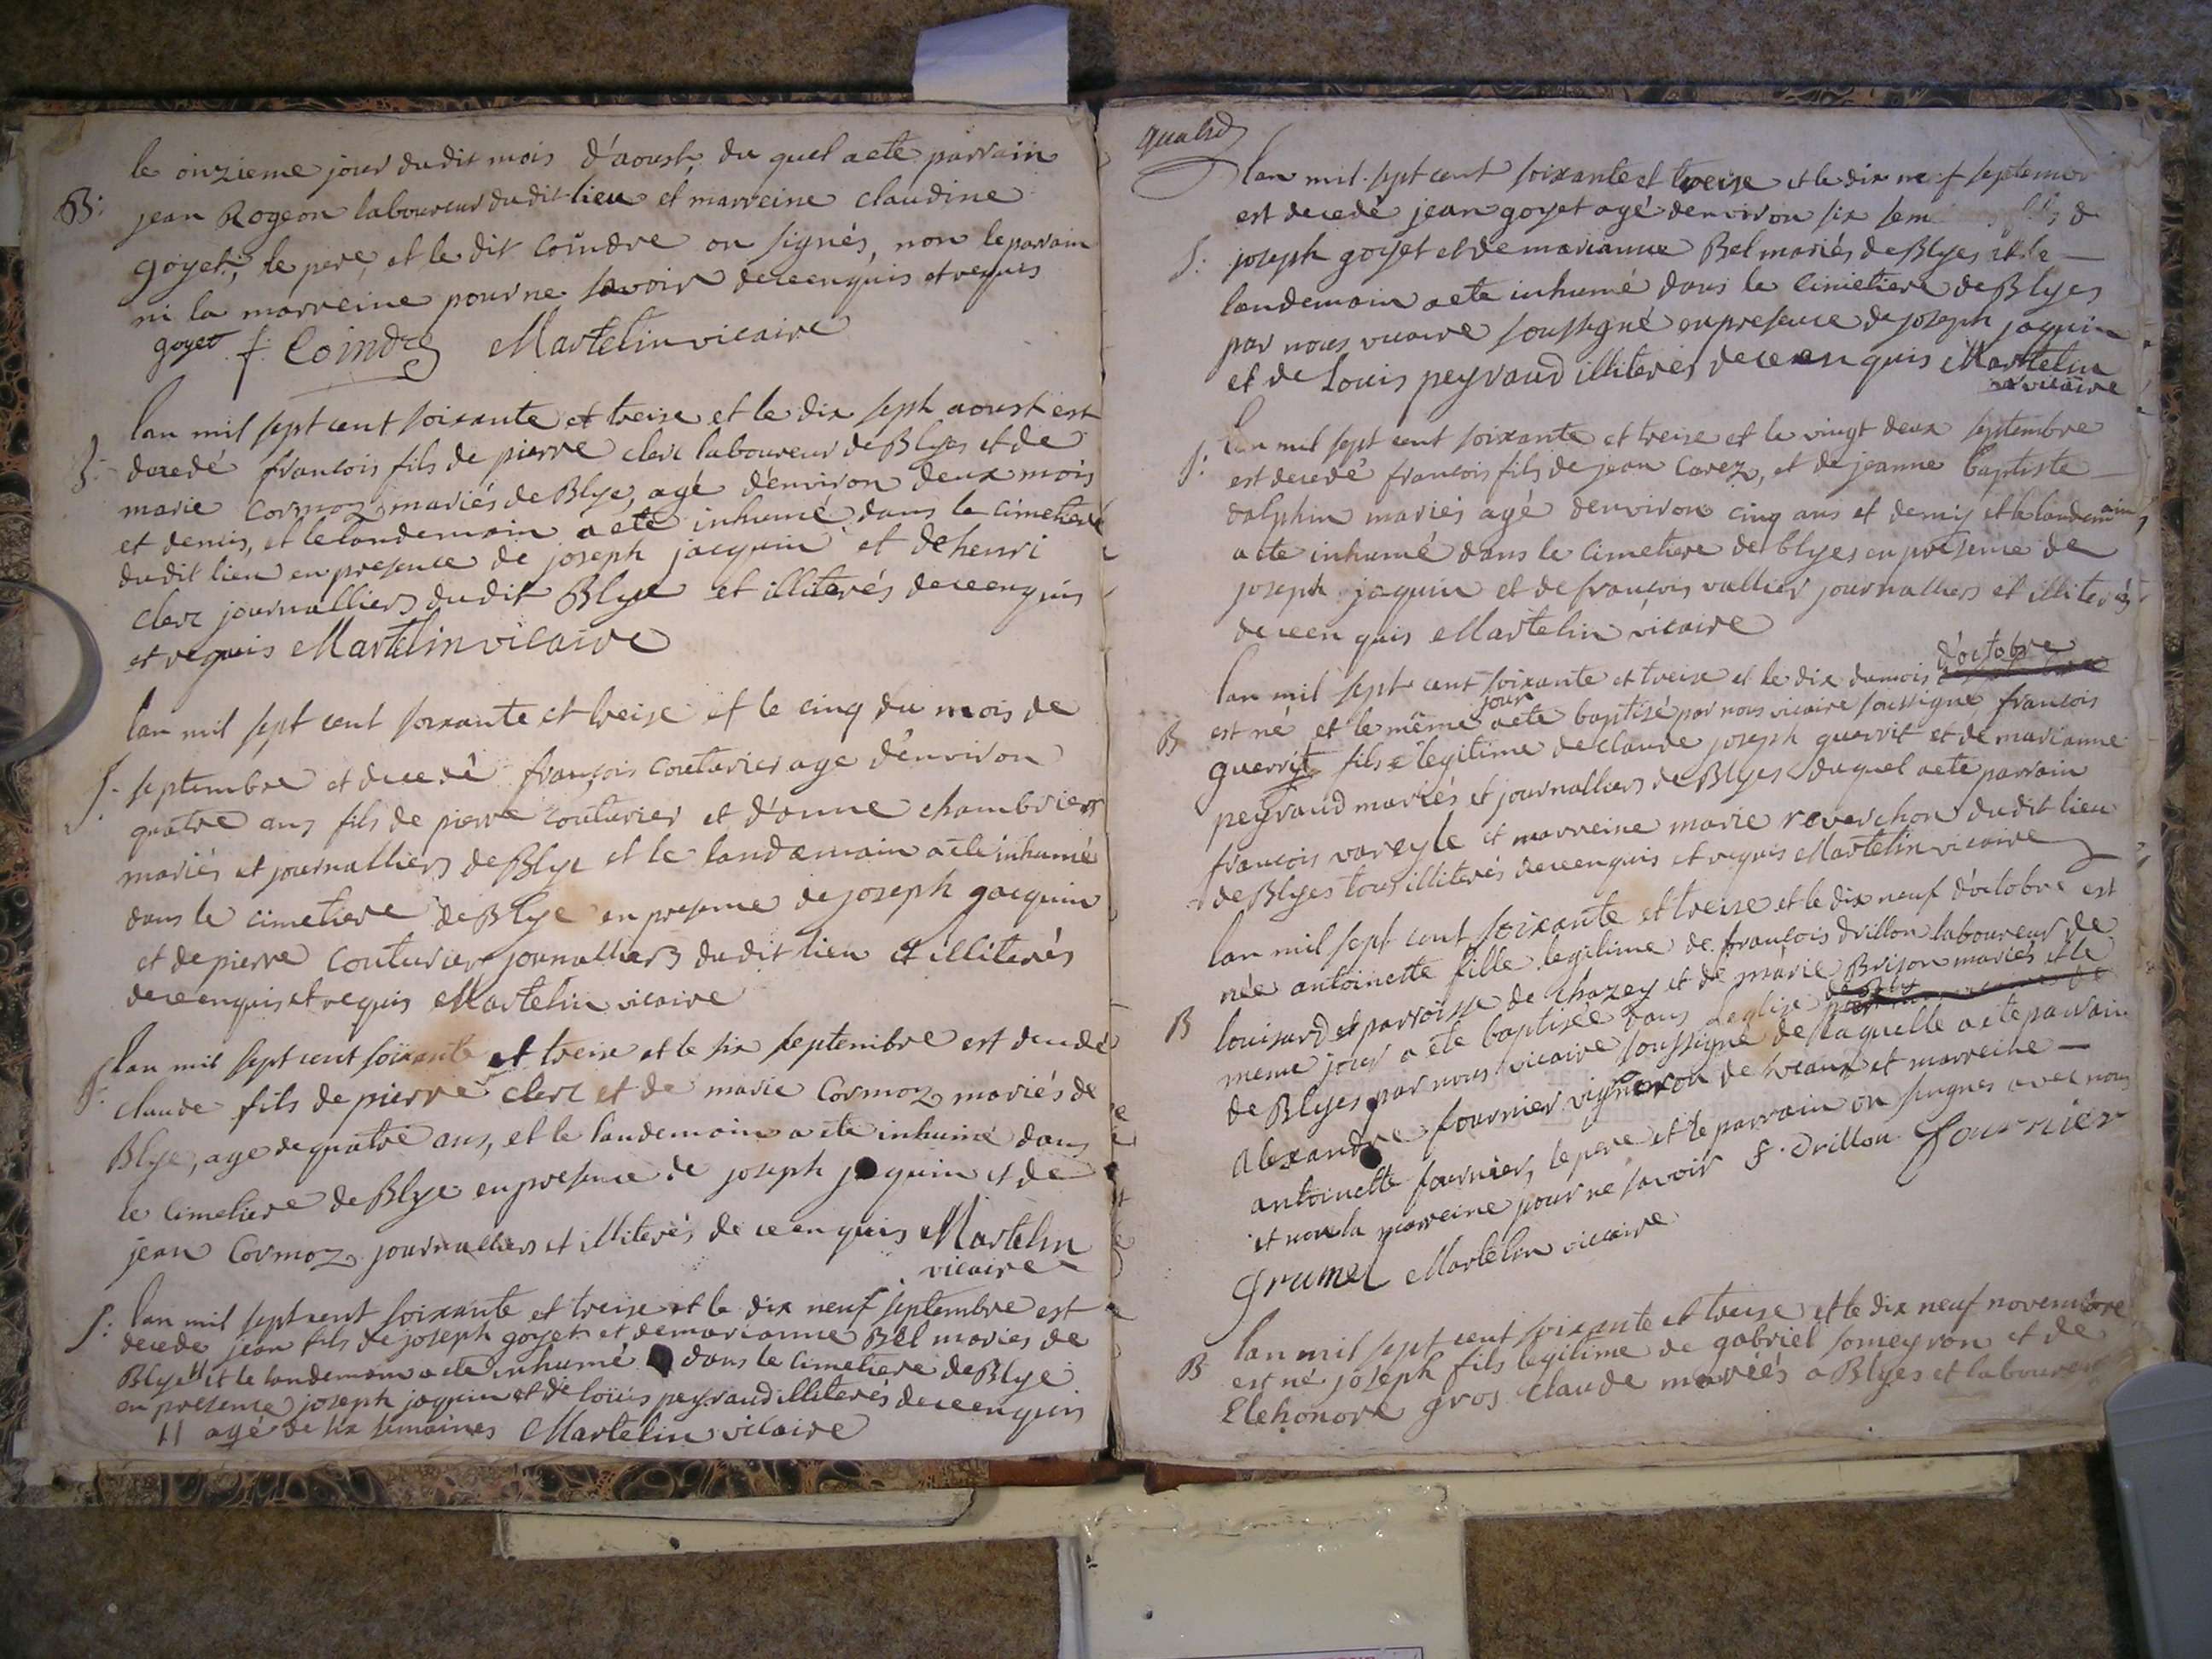 le onzieme jour dudit mois d'aoust, du quel a ete parrain
B: jean Rogeon laboureur dudit lieu et marreine claudine
goyet, le pere, et le dit Coindre on signés, non le parrain
ni la marreine pour ne savoir de ce enquis et requis
goyet f. Coindre Martelin vicaire
lan mil sept cent soixante et treise et le dix sept aoust est
S: decedé francois fils de pierre clerc laboureur de Blyes et de
marie Cormoz mariés de Blye, agé d'environ deux mois
et demis, et le landemain a ete inhumé dans le cimetiere
dudit lieu en presence de joseph jacquin et de henri
clerc journalliers dudit Blye et illiterés de ce enquis
et requis Martelin vicaire
lan mil sept cent soixante et treise et le cinq du mois de
S. septembre et decedé françois couturier age d'environ
quatre ans fils de pierre couturier et d'anne chambrier
mariés et journalliers de Blye et le landemain a ete inhumé
dans le cimetiere de Blye en presence de joseph jacquin
et de pierre Couturier journalliers dudit lieu et illiterés
de ce enquis et requis Martelin vicaire
lan mil sept cent soixante et treise et le six septembre est decedé
S: claude fils de pierre clerc et de marie Cormoz mariés de
Blye, age de quatre ans, et le landemain a ete inhumé dans
le cimetiere de Blye en presence de joseph jaquin et de
jean Cormoz journalliers et illiterés de ce enquis Martelin
vicaire
S: lan mil sept cent soixante et treise et le dix neuf septembre est
decede jean fils de joseph goyet et de marianne Bel maries de
Blye et le landemain a ete inhumé dans le cimetiere de Blye
en presence joseph jaquin et de loüis peyraud illiterés de ce enquis
agé de six semaines Martelin vicaire
lan mil sept cent soixante et treise et le dix neuf septembre
est decedé jean goyet agé denviron six sem
S: joseph goyet et de marianne Bel mariés de Blyes et le
landemain a ete inhumé dans le cimetiere de Blyes
par nous vicaire soussigné en presence de joseph jaquin
et de Louis peyraud illiterés de ce enquis Martelin
vicaire
S: Lan mil sept cent soixante et treise et le vingt deux septembre
est decedé francois fils de jean Carez, et de jeanne baptiste
dalphin mariés agé denviron cinq ans et demis et le landemain
a ete inhumé dans le cimetiere de blyes en presence de
joseph jaquin et de françois vallier journalliers et illiterés
de ce en quis Martelin vicaire
lan mil sept cent soixante et treise et le dix du mois d'octobre
B est né et le même jour a ete baptisé par nous vicaire soussigné francois
guerrit fils legitime de claude joseph guerrit et de marianne
peyraud mariés et journalliers de Blyes duquel a ete parrain
francois vareyle et marreine marie reverchon dudit lieu
de Blyes tous illiterés de ce enquis et requis Martelin vicaire
lan mil sept cent soixante et treise et le dix neuf d'octobre est
née antoinette fille legitime de francois drillon laboureur de
B louisard et parroisse de chazey et de marie Brison mariés et le
meme jour a ete baptisée dans L'eglise
de Blyes par nous vicaire soussigné de laquelle a ete parrain
alexandre fournier vigneron de et marreine
antoinette fournier, le pere et le parrain on signes avec nous
et non la marreine pour ne savoir f. drillon fournier
Martelin vicaire
lan mil sept cent soixante et treise et le dix neuf novembre
B est né joseph fils legitime de gabriel someyron et de
Elehonore gros claude mariés a Blyes et laboureur